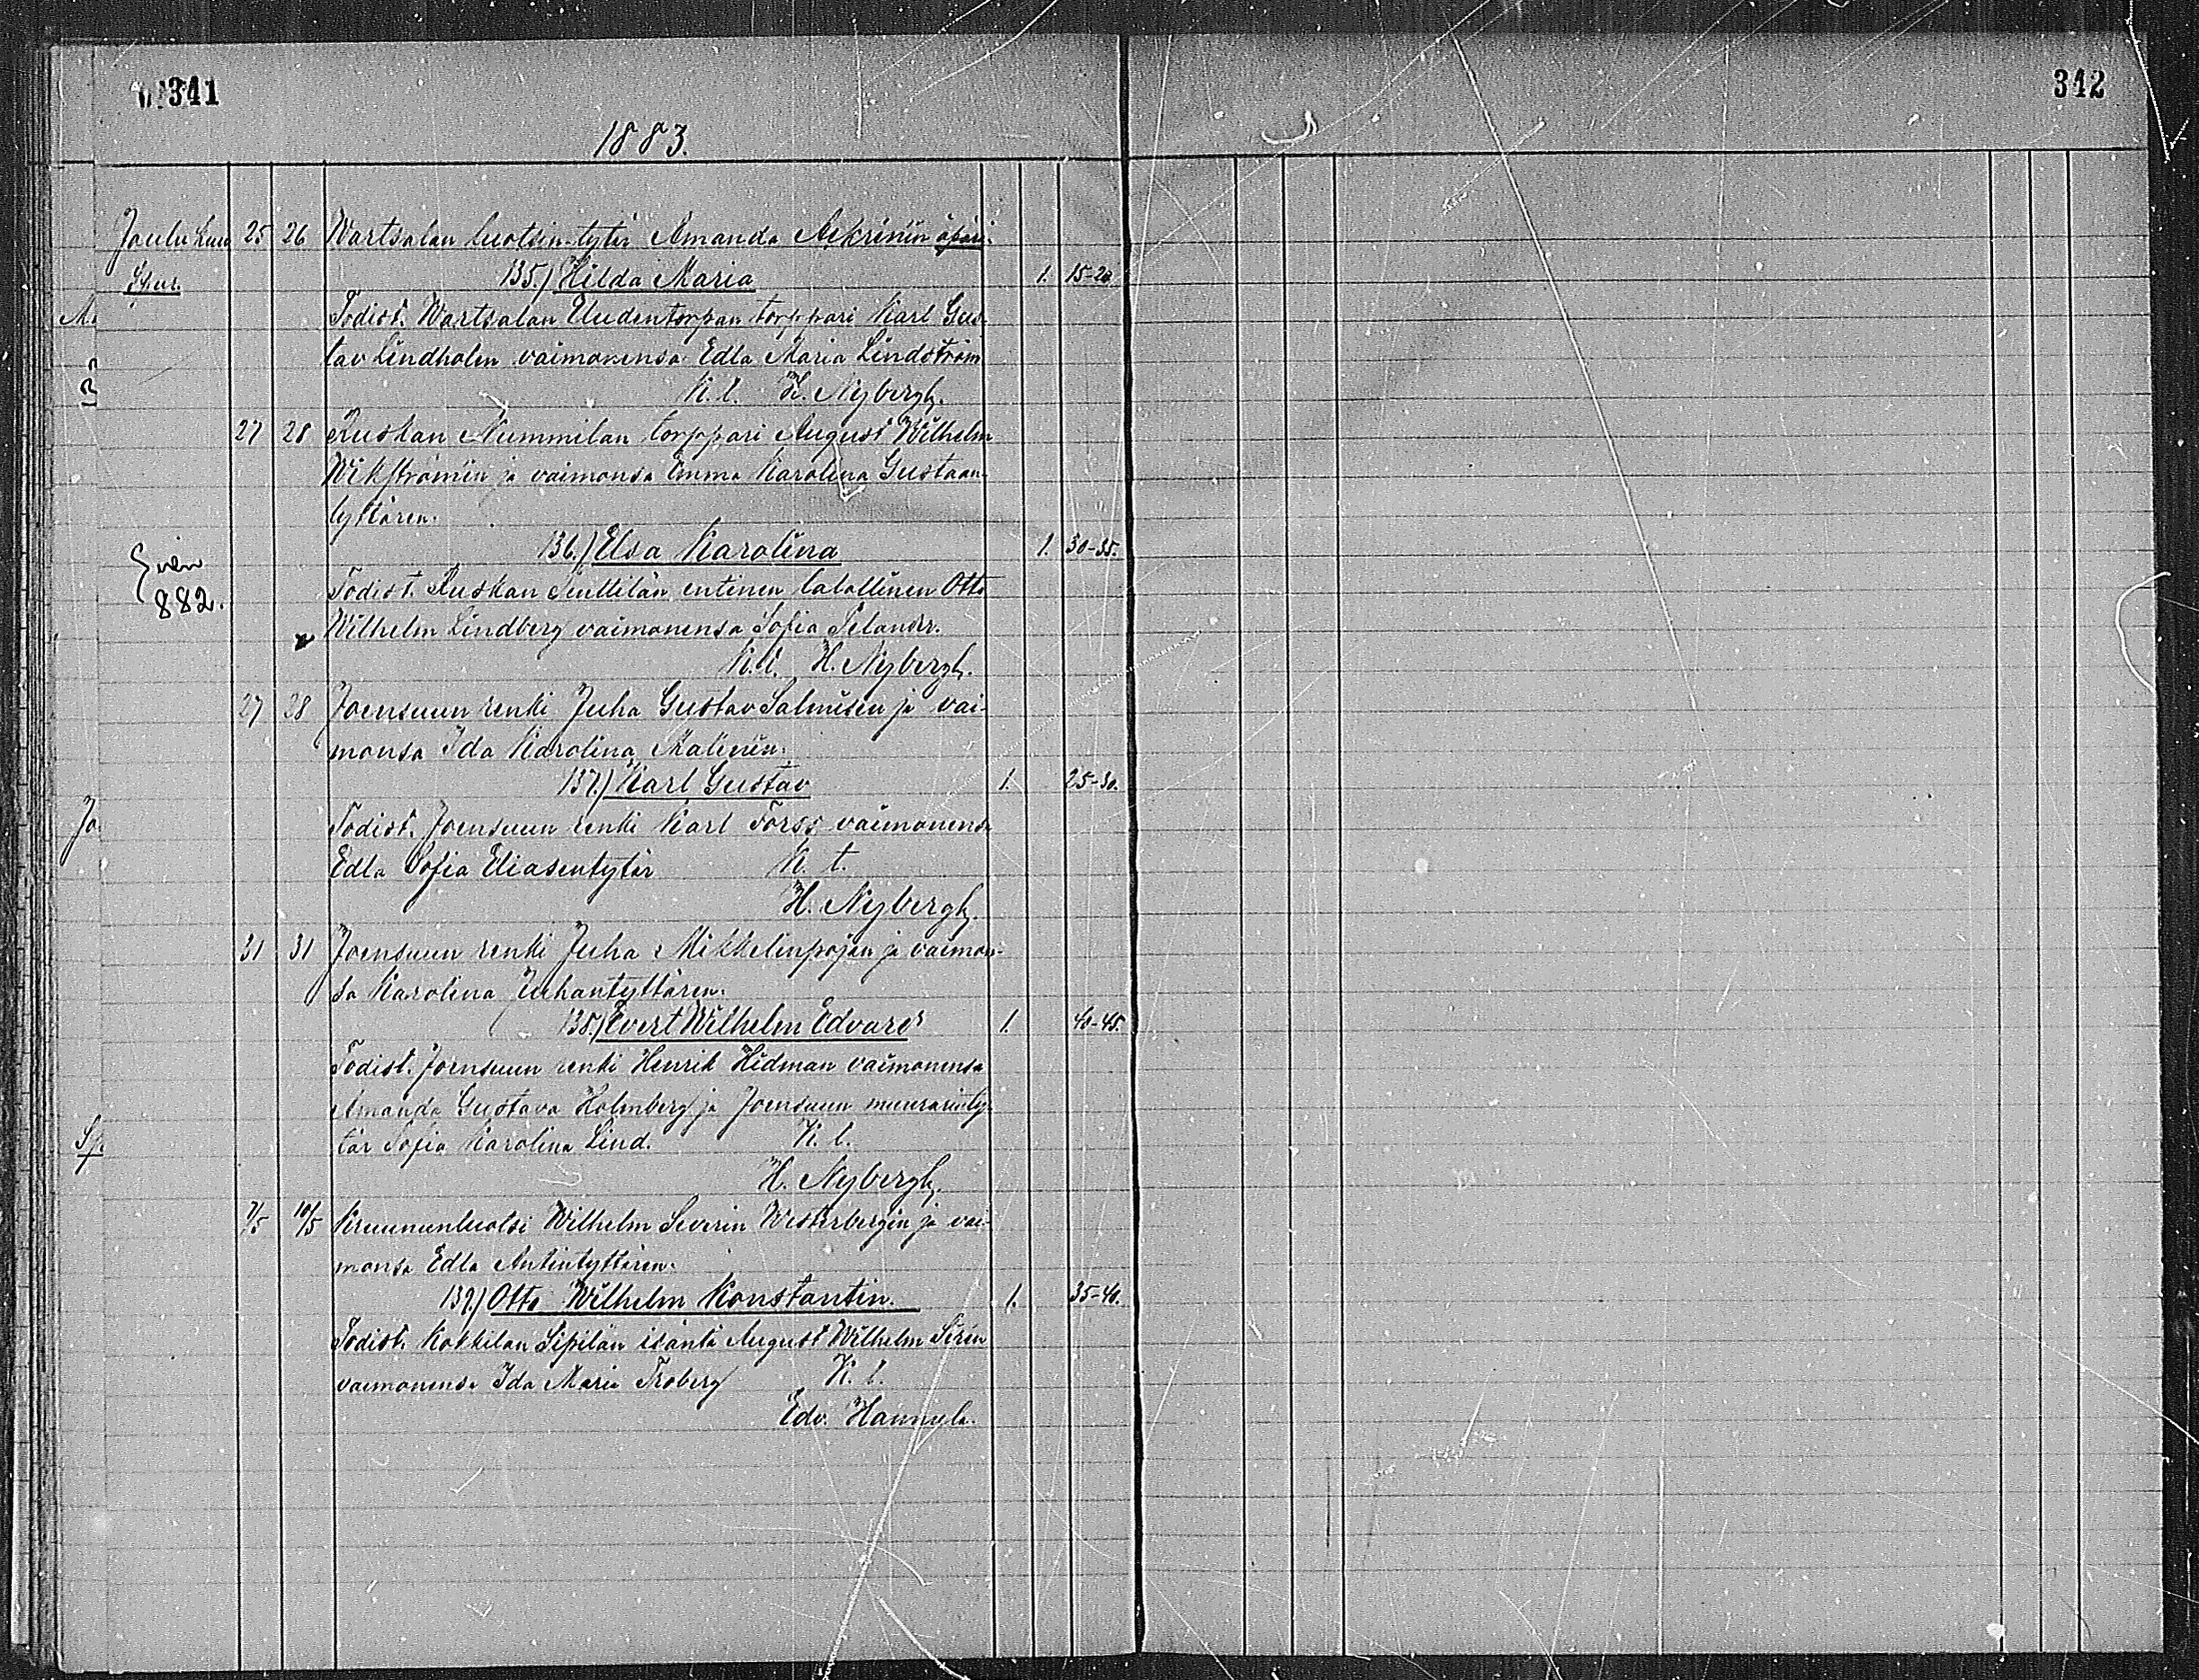 341
342
1883.
Joulukuu 25 26 Wartsalan luotsin-tytär Amanda Aekrénin äpärä
Spur. 135.) Hilda Maria 1. 15-20
Todist. Wartsalan Uudentorpan torppari Karl Gus-
tav Lindholm vaimonensa Edla Maria Lindström
K. t. H. Nybergh.
27 28 Ruskan Nummilan torppari August Wilhelm
Wikströmin ja vaimonsa Emma Karolina Gustaan-
tyttären.
136.) Elsa Karolina 1. 30-35.
882.
Todist. Ruskan entinen talollinen Otto
Wilhelm Lindberg vaimonensa Sofia Selander.
K. t. H. Nybergh.
27 28 Joensuun renki Juha Gustav Salmisen ja vai-
monsa Ida Karolina Malenin.
137.) Karl Gustav 1. 25-30.
Todist. Joensuun renki Karl Forss vaimonensa
Edla Sofia Eliasentytär K. t.
H. Nybergh.
31 31 Joensuun renki Juha Mikkelinpojan ja vaimon-
sa Karolina Juhantyttären.
138.) Evert Wilhelm Edvard 1. 40-45.
Todist. Joensuun renki Henrik Hidman vaimonensa
Amanda Gustava Holmberg ja Joensuun muurarinty-
tär Sofia Karolina Lind. K. t.
H. Nybergh.
7/5 10/5 Kruununluotsi Wilhelm Severin Westerbergin ja vai-
monsa Edla Antintyttären.
139.) Otto Wilhelm Konstantin. 1. 35-40.
Todist. Kokkilan Sipilän isäntä August Wilhelm Sirén
vaimonensa Ida Maria Froberg K. t.
Edv. Hannula.